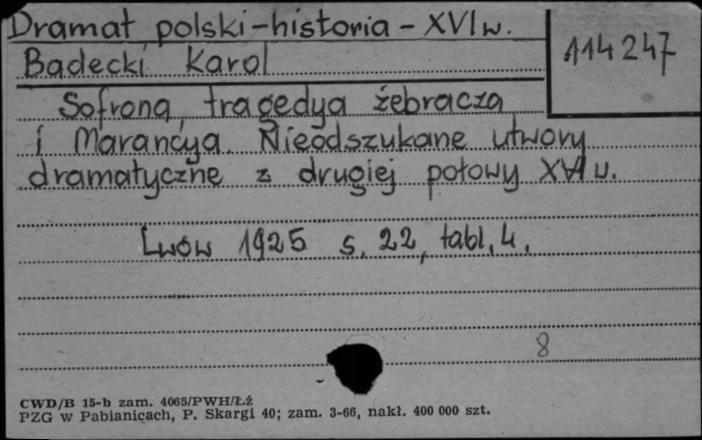 Dramat polski-historia - XVI w.
114247
Badecki Karol
Sofrona, tragedya żebracza
i Marancya. Nieodszukane utwory
dramatyczne z drugiej połowy XVI w.
Lwów 1925 s. 22, tabl. 4.
8
CWD/B 15-b zam. 4065/PWH/ŁŹ
PZG w Pabianicach, P. Skargi 40; zam. 3-66, nakł. 400 000 szt.